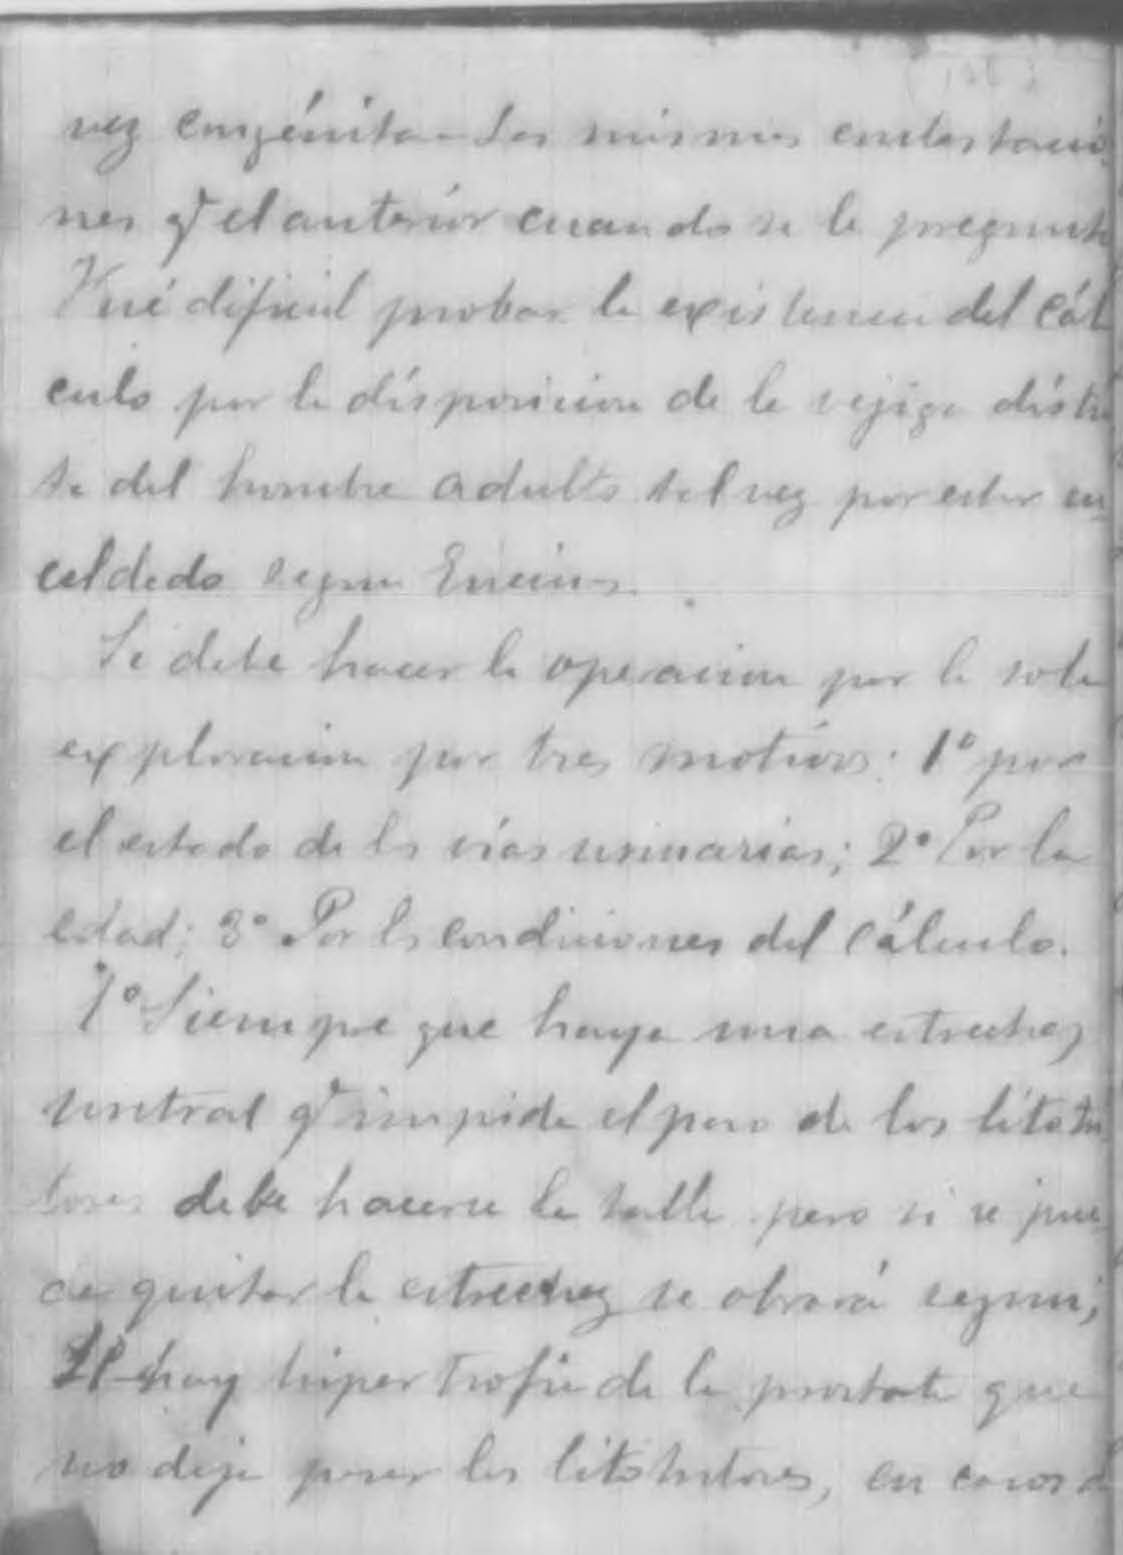 vez congénita - Las mismas contestacio
nes q̃ el anterior cuando se le pregunta
Fué dificil probar la existencia del cál
culo por la disposicion de la vejiga distin
ta del hombre adulto tal vez por estar en
celdado segun Encinas.
Se debe hacer la operacion por la sola
exploracion por tres motivos: 1º por
el estado de las vias urinarias; 2º Por la
edad; 3º Por las condiciones del cálculo.
1º Siempre que haya una estrechez
uretral q̃ impide el paso de los litotri
tores debe hacerse la talla pero si se pue
de quitar la estrechez se obrará segun;
hay hipertrofia de la prostata que
no deja pasar los litotritores, en casos